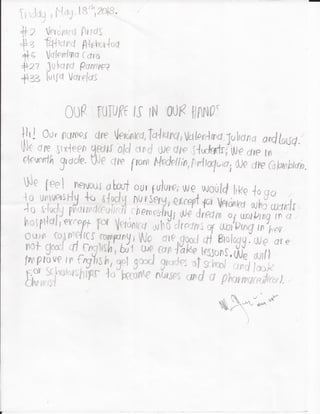 Friday, May 18th, 2018.
#2 Verónica
#3 Tatiana
#6 Valentina Cano
#27 Juliana Ramírez
#33 Luisa Varelas
OUR FUTURE IS IN OUR HANDS
Hi! Our names are Verónica, Tatiana, Valentina, Juliana and Luisa.
We are sixteen years old and we are students; We are in
eleventh grade. We are from Medellín, Antioquia; We are Colombian.
We feel nervous about our future; we would like to go
to university to study nursery, except for Verónica who wants
to study pharmaceutical chemestry; we dream of working in a
hospital, except for Verónica who dreams of working in her
own cosmetics company, We are good at Biology. We are
not good at English, but we can take lessons. We will
improve in English, get good grades at school and look
for scholarships to become nurses and a pharmaceutical
chemist